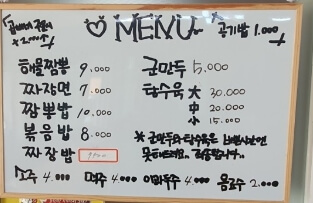 곱빼기 주문시
+ 2.000↑
MENU
공기밥 1.000
해물짬뽕 9.000
짜장면 7.000
짬뽕밥 10.000
볶음밥 8.000
짜장밥
군만두 5.000
탕수육 大 30.000
中 20.000
小 15.000
* 군만두와 탕수육은
못해드려요. 죄송합니다..
소주 4.000 맥주 4.000 이과두주 4.000 음료수 2.000